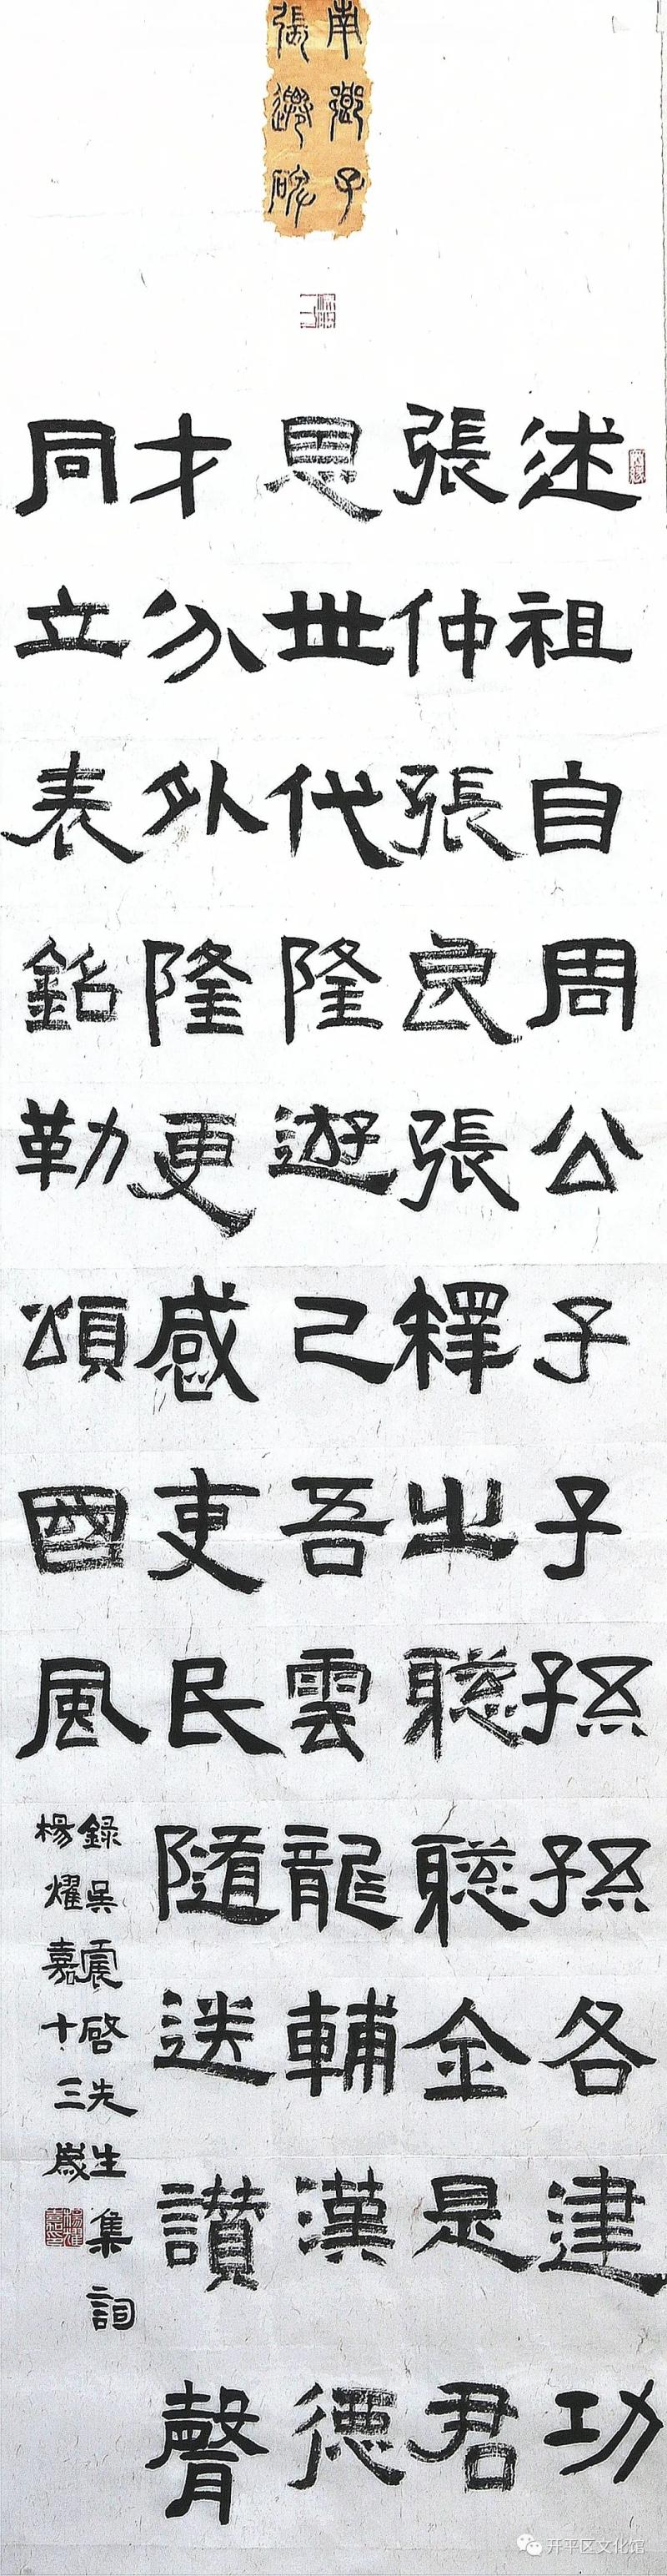 南鄉子
張遷碑
述祖自周公子子孫孫各建功
張仲張良張釋之聰聰金是君
恩世代隆遊己吾雲龍輔漢德
才分外隆更感吏民隨送讚聲
同立表銘勒頌國風
錄吳震啓先生集詞
楊燿嘉十三歲
开平区文化馆